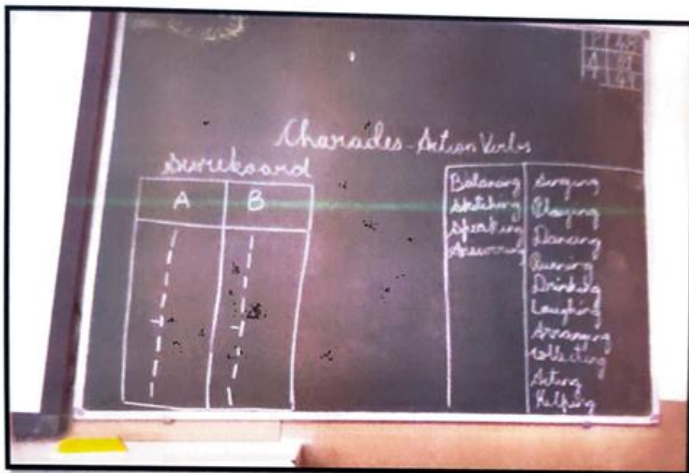 Charades - Action Verbs
Scoreboard
A B
Balancing
Sketching
Speaking
Answering
Singing
Playing
Dancing
Running
Drinking
Laughing
Arranging
Collecting
Acting
Helping